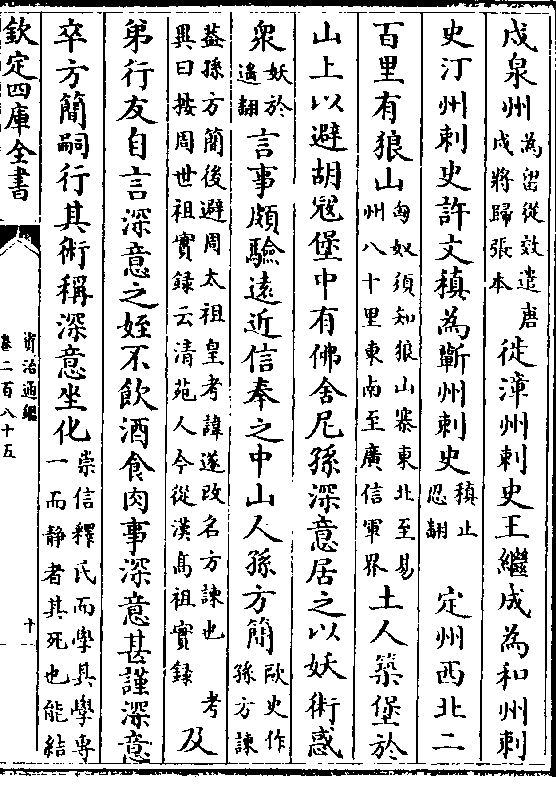 戍泉州為留從效遣唐戍將歸張本徙漳州刺史王繼成為和州刺
史汀州刺史許文稹為蘄州刺史稹止忍翻定州西北二
百里有狼山匈奴須知狼山寨東北至易州八十里東南至廣信軍界土人築堡於
山上以避胡寇堡中有佛舍尼孫深意居之以妖術惑
衆妖於遙翻言事頗驗遠近信奉之中山人孫方簡歐史作孫方諫
蓋孫方簡後避周太祖皇考諱遂改名方諫也考異曰按周世祖實録云清苑人今從漢髙祖實録及
弟行友自言深意之姪不飲酒食肉事深意甚謹深意
卒方簡嗣行其術稱深意坐化崇信釋氏而學其學專一而静者其死也能結
欽定四庫全書
資治通鑑
卷二百八十五
十